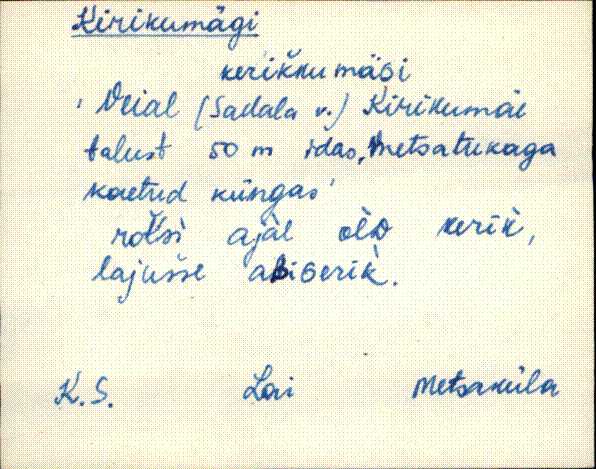 Kirikumägi
kerikku mäGi
'Veial (Sadala v.) Kirikumäe
talust 50 m idas, metsatukaga
kaetud küngas'
rotsi ajàl olD kerik̀,
lajusse aBiGerik̀.
K.S. Lai Metsaküla